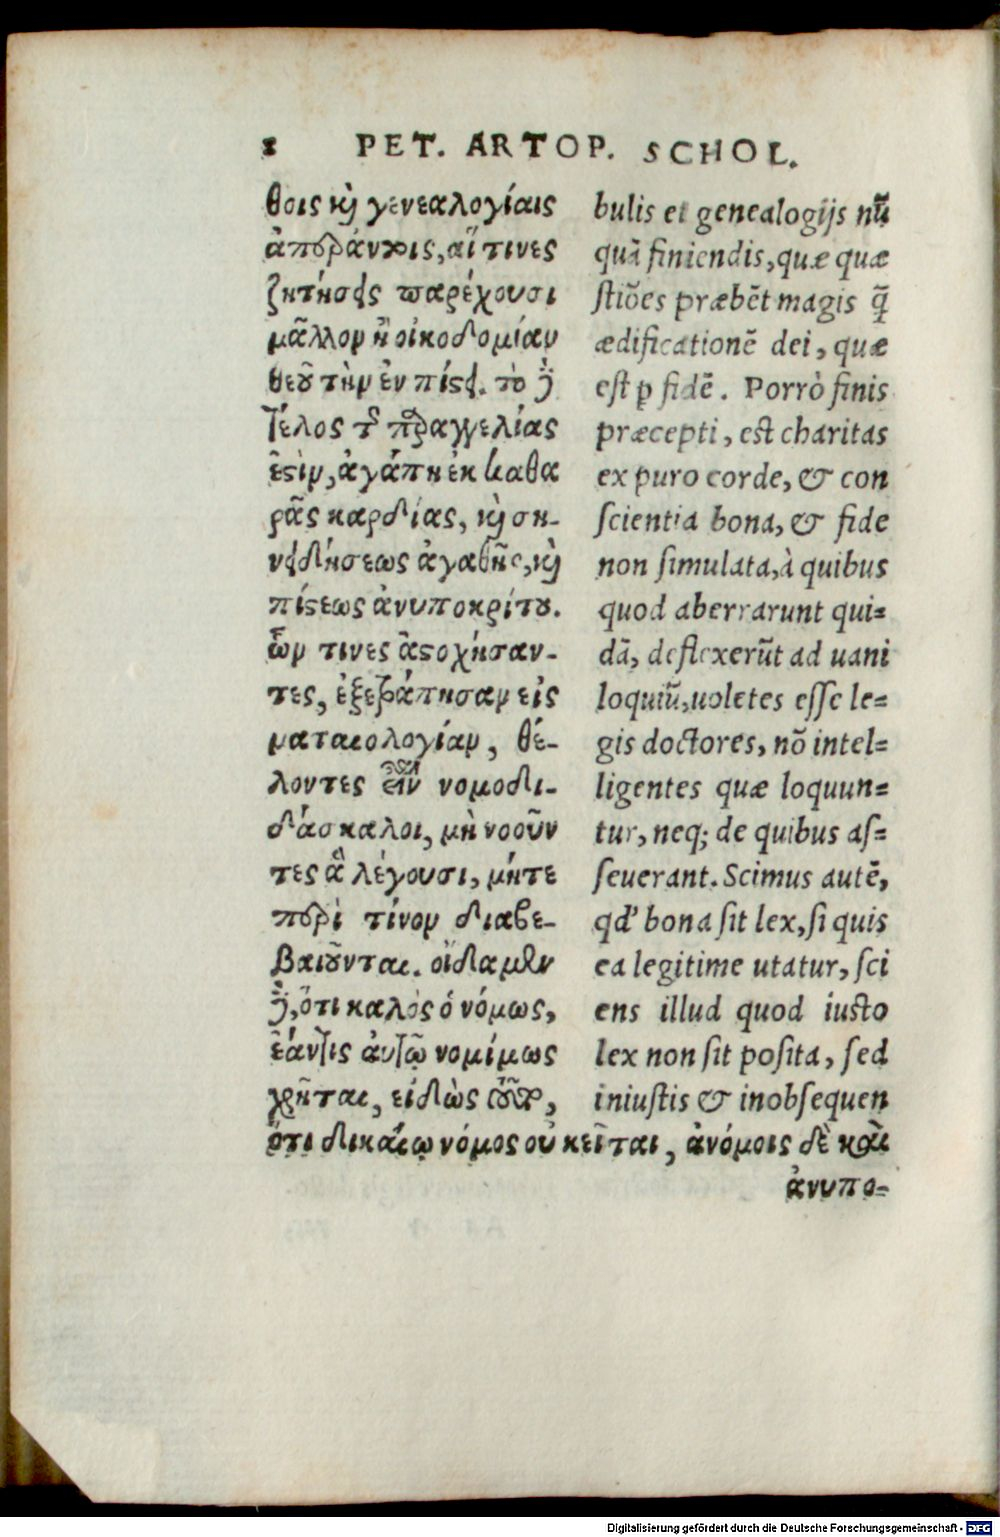 8 PET. ARTOP. SCHOL.
θοις καὶ γενεαλογίαις
ἀπεράντοις, αἵ τινες
ζητήσεις παρέχουσι
μᾶλλον ἢ οἰκοδομίαν
θεοῦ τὴν ἐν πίστει. τὸ δὲ
τέλος τῆς παραγγελίας
ἐστὶν, ἀγάπη ἐκ καθα
ρᾶς καρδίας, καὶ συ-
νειδήσεως ἀγαθῆς, καὶ
πίστεως ἀνυποκρίτου.
ὧν τινες ἀστοχήσαν-
τες, ἐξετράπησαν εἰς
ματαιολογίαν, θέ-
λοντες εἶναι νομοδι-
δάσκαλοι, μὴ νοοῦν
τες ἃ λέγουσι, μήτε
περὶ τίνων διαβε-
βαιοῦνται. οἴδαμεν
δὲ, ὅτι καλὸς ὁ νόμως,
ἐάν τις αὐτῷ νομίμως
χρῆται, εἰδὼς τοῦτο,
ὅτι δικαίῳ νόμος οὐ κεῖται, ἀνόμοις δὲ καὶ
ἀνυπο-
bulis et genealogijs nũ
quã finiendis, quæ quæ
stiões præbẽt magis q̃
ædificationẽ dei, quæ
est p fidẽ. Porrò finis
præcepti, est charitas
ex puro corde, & con
scientia bona, & fide
non simulata, à quibus
quod aberrarunt qui=
dã, deflexerũt ad uani
loquiũ, uoletes esse le=
gis doctores, nõ intel=
ligentes quæ loquun=
tur, neq; de quibus as=
seuerant. Scimus autẽ,
qd' bona sit lex, si quis
ea legitime utatur, sci
ens illud quod iusto
lex non sit posita, sed
iniustis & inobsequen
Digitalisierung gefördert durch die Deutsche Forschungsgemeinschaft - DFG